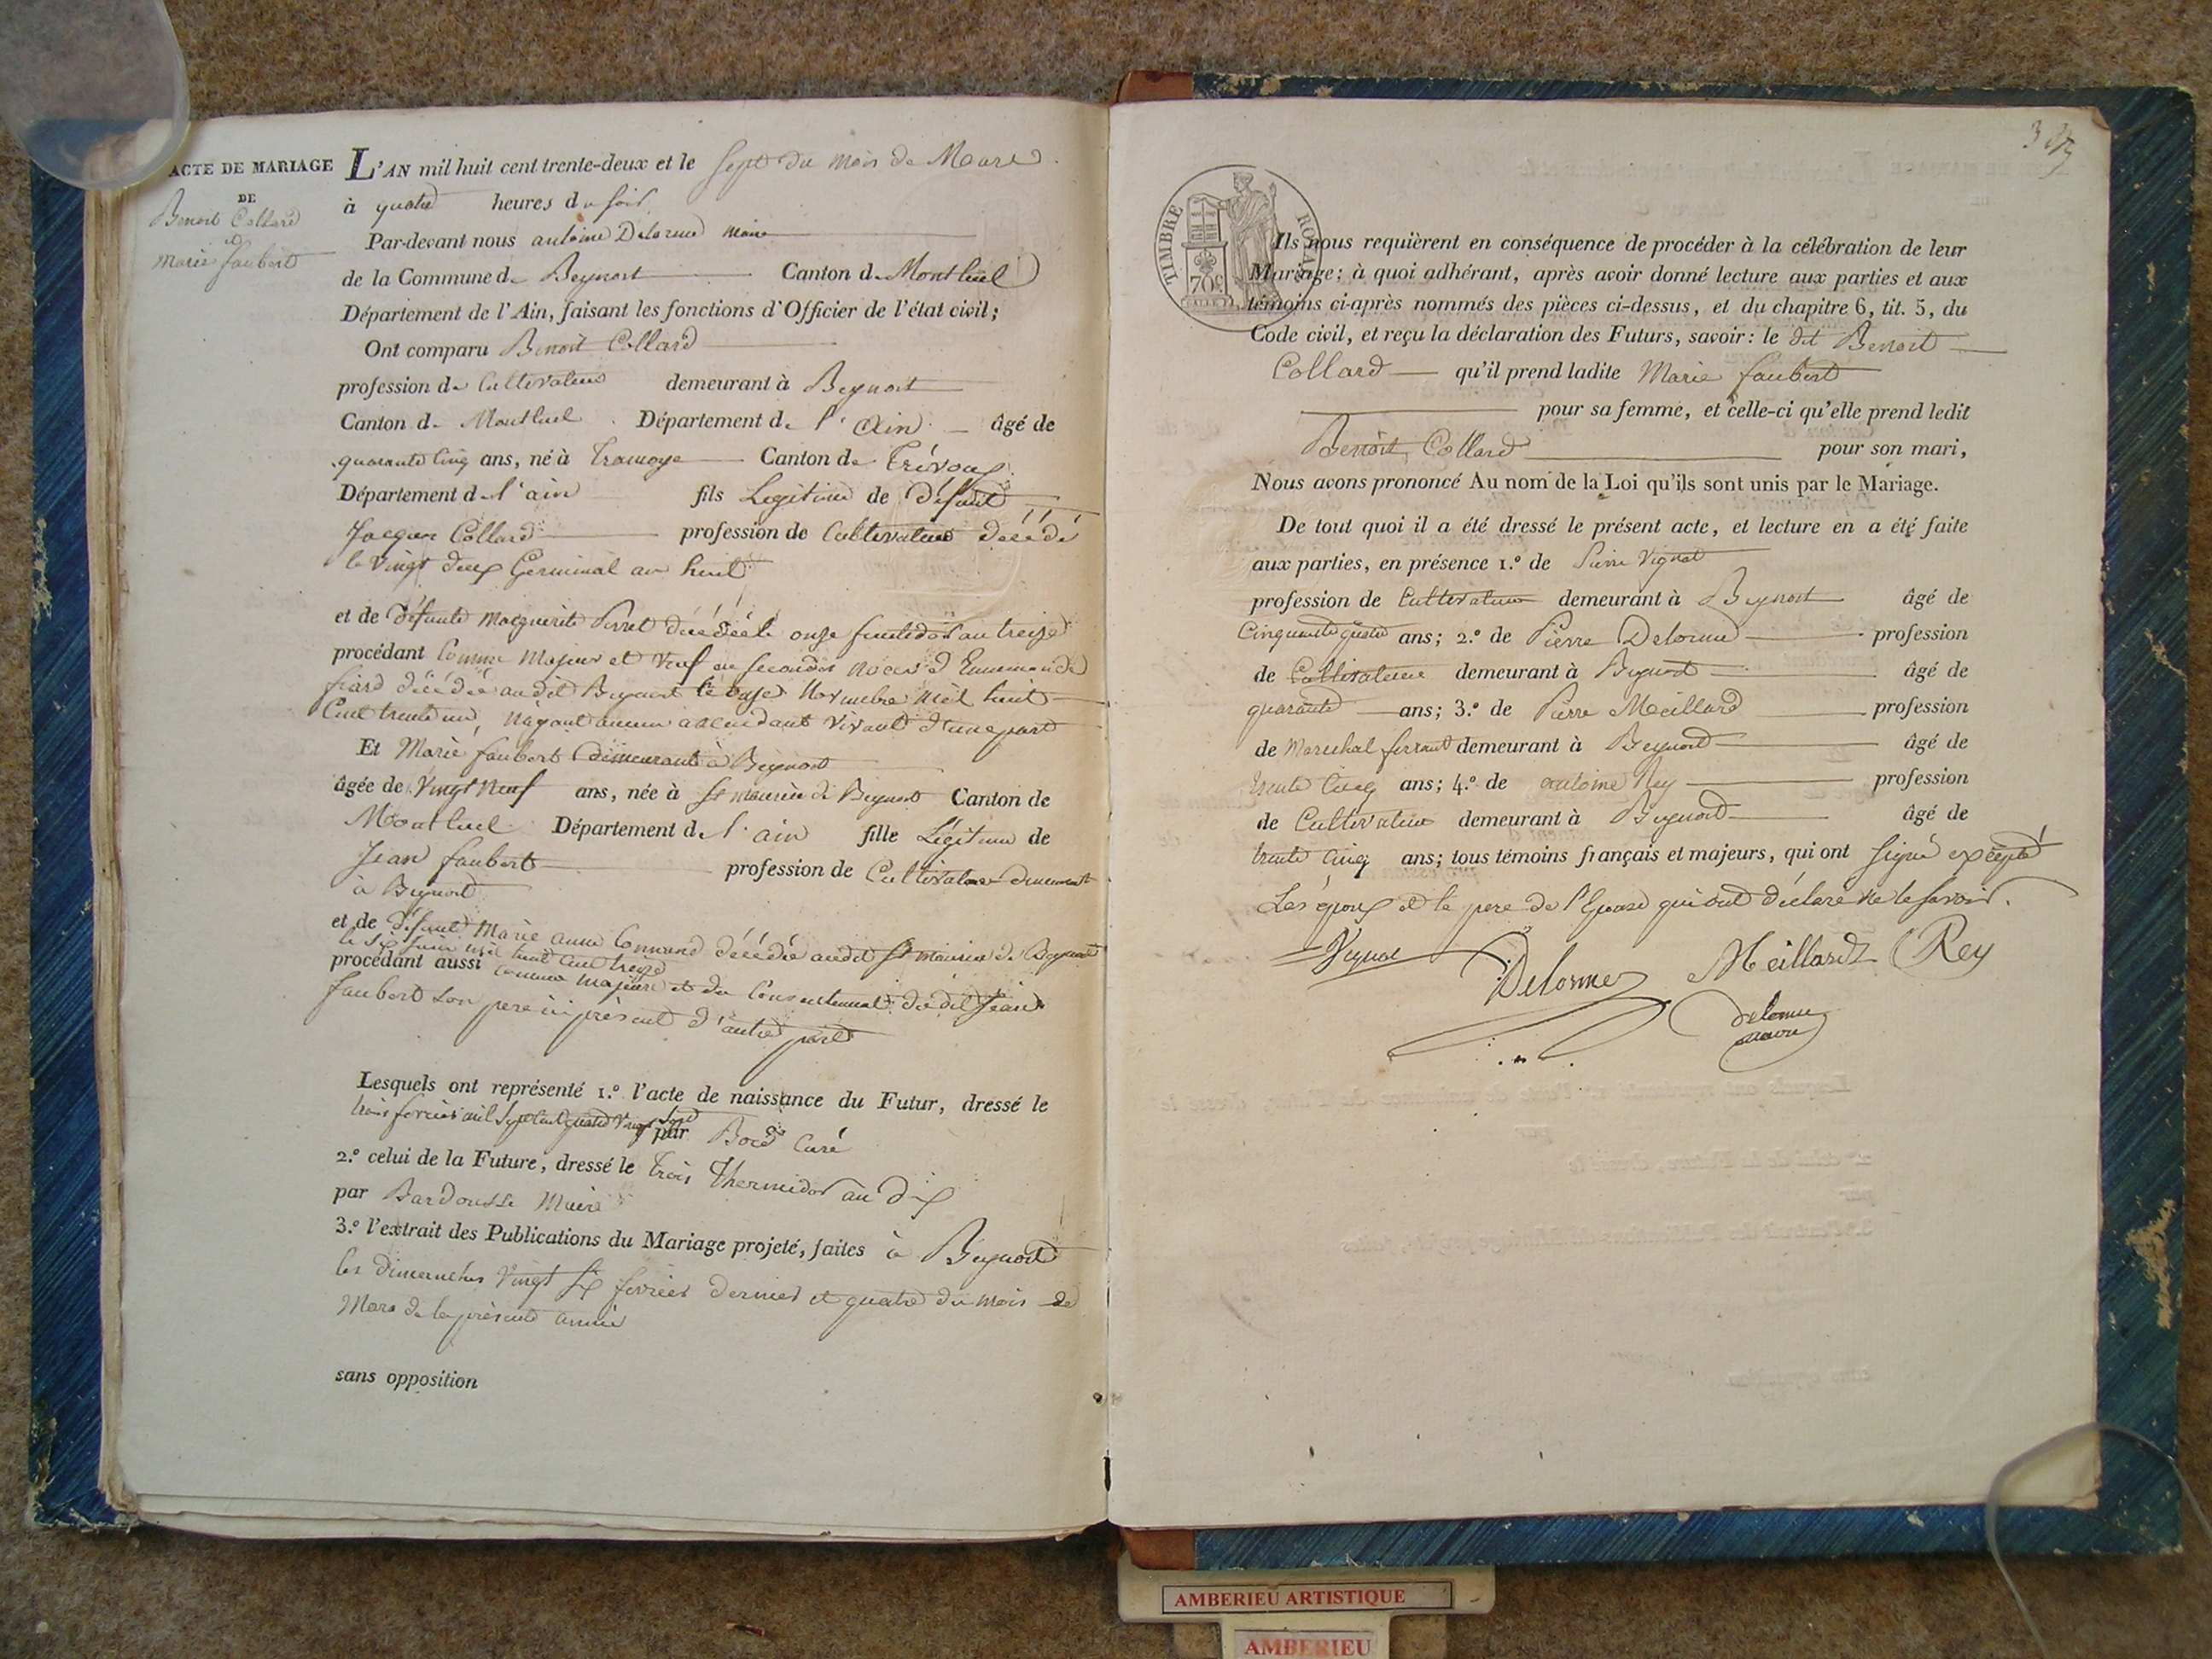 ACTE DE MARIAGE
DE
Benoit Collard
et
Marie faubert
L'AN mil huit cent trente-deux et le Sept du mois de Mars
à quatre heures du soir
Par-devant nous antoine Delorme maire
de la Commune de Beynost Canton de Montluel
Département de l'Ain, faisant les fonctions d'Officier de l'état civil;
Ont comparu Benoit Collard
profession de Cultivateur demeurant à Beynost
Canton de Montluel Département de l'Ain âgé de
quarante cinq ans, né à Tramoye Canton de Trévoux
Département de l'ain fils Legitime de défunt
Jacques Collard profession de Cultivateur décédé
le vingt deux Germinal an huit
et de défunte Marguerite Perret décédée le onze fructidor an treize
procédant Comme Majeur et Veuf en secondes noces d'Ennemonde
fiard décédée audit Beynost le onze Novembre mil huit
Cent trente un, n'ayant aucun ascendant vivant d'une part
Et Marie faubert demeurant à Beynost
âgée de Vingt Neuf ans, née à St maurice de Beynost Canton de
Montluel Département de l'ain fille Légitime de
Jean faubert profession de Cultivateur demeurant
à Beynost
et de défunte Marie anne décédée audit St maurice de Beynost
le six juin mil huit cent treize
procédant aussi comme majeure et du Consentement du dit Jean
faubert son pere ici présent d'autre part
Lesquels ont représenté 1.º l'acte de naissance du Futur, dressé le
trois fevrier mil sept cent quatre vingt sept par Curé
2.º celui de la Future, dressé le trois thermidor an dix
par Bardousse Maire
3.º l'extrait des Publications du Mariage projeté, faites à Beynost
les dimanches vingt six fevrier dernier et quatre du mois de
Mars de la présente année
sans opposition
TIMBRE ROYAL
70 c
Ils nous requièrent en conséquence de procéder à la célébration de leur
Mariage; à quoi adhérant, après avoir donné lecture aux parties et aux
témoins ci-après nommés des pièces ci-dessus, et du chapitre 6, tit. 5, du
Code civil, et reçu la déclaration des Futurs, savoir: le dit Benoit
Collard qu'il prend ladite Marie faubert
pour sa femme, et celle-ci qu'elle prend ledit
Benoit Collard pour son mari,
Nous avons prononcé Au nom de la Loi qu'ils sont unis par le Mariage.
De tout quoi il a été dressé le présent acte, et lecture en a été faite
aux parties, en présence 1.º de Pierre Vignat
profession de Cultivateur demeurant à Beynost âgé de
Cinquante quatre ans; 2.º de Pierre Delorme profession
de Cultivateur demeurant à Beynost âgé de
quarante ans; 3.º de Pierre Meillard profession
de Marechal ferrant demeurant à Beynost âgé de
trente Cinq ans; 4.º de antoine Rey profession
de Cultivateur demeurant à Beynost âgé de
trente Cinq ans; tous témoins français et majeurs, qui ont signé excepté
Les époux et le pere de l'Epouse qui ont déclaré ne le savoir.
Vignat Delorme Meillard Rey
delorme
maire
AMBERIEU ARTISTIQUE
AMBERIEU